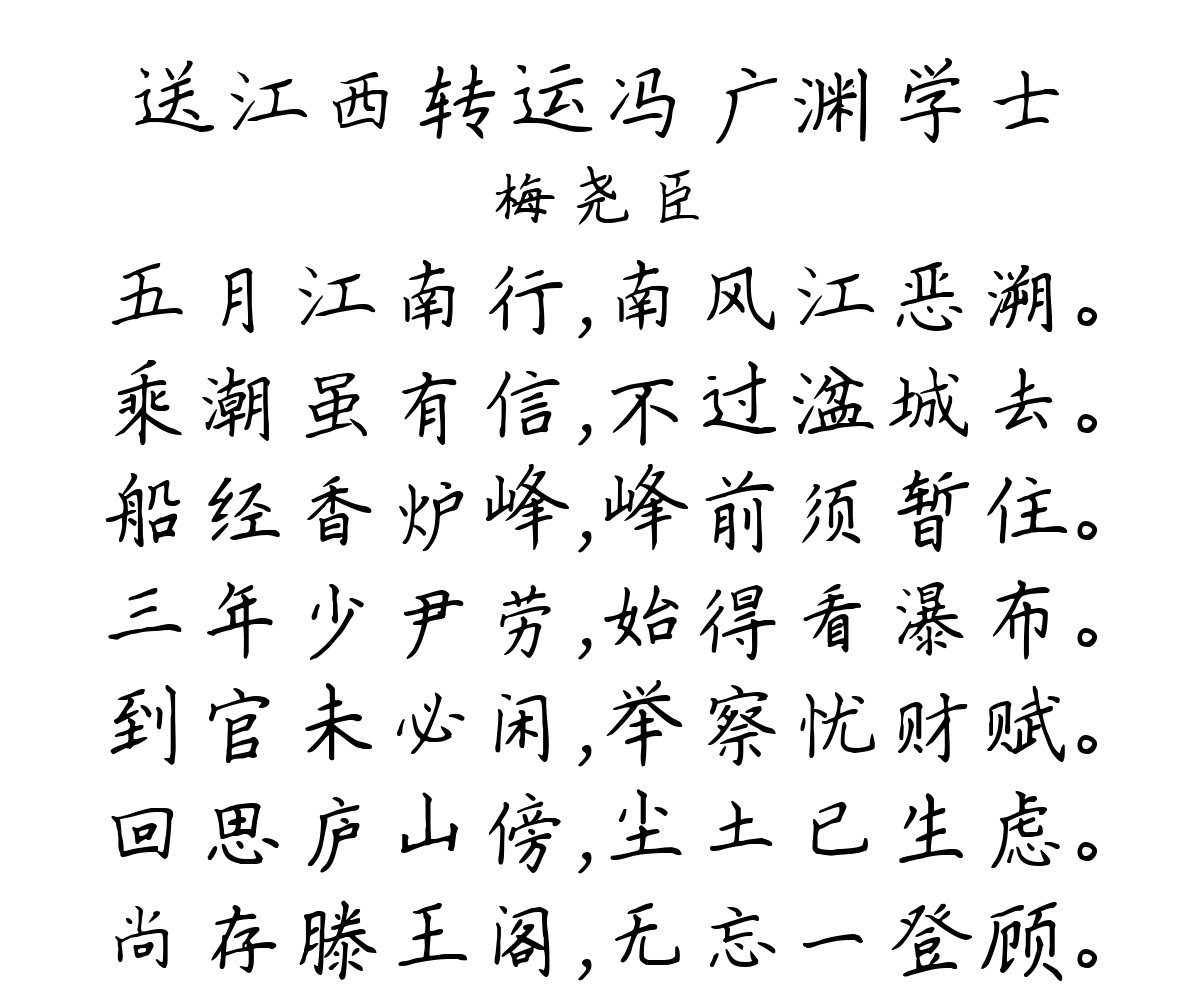 送江西转运冯广渊学士
梅尧臣
五月江南行,南风江恶溯。
乘潮虽有信,不过湓城去。
船经香炉峰,峰前须暂住。
三年少尹劳,始得看瀑布。
到官未必闲,举察忧财赋。
回思庐山傍,尘土已生虑。
尚存滕王阁,无忘一登顾。